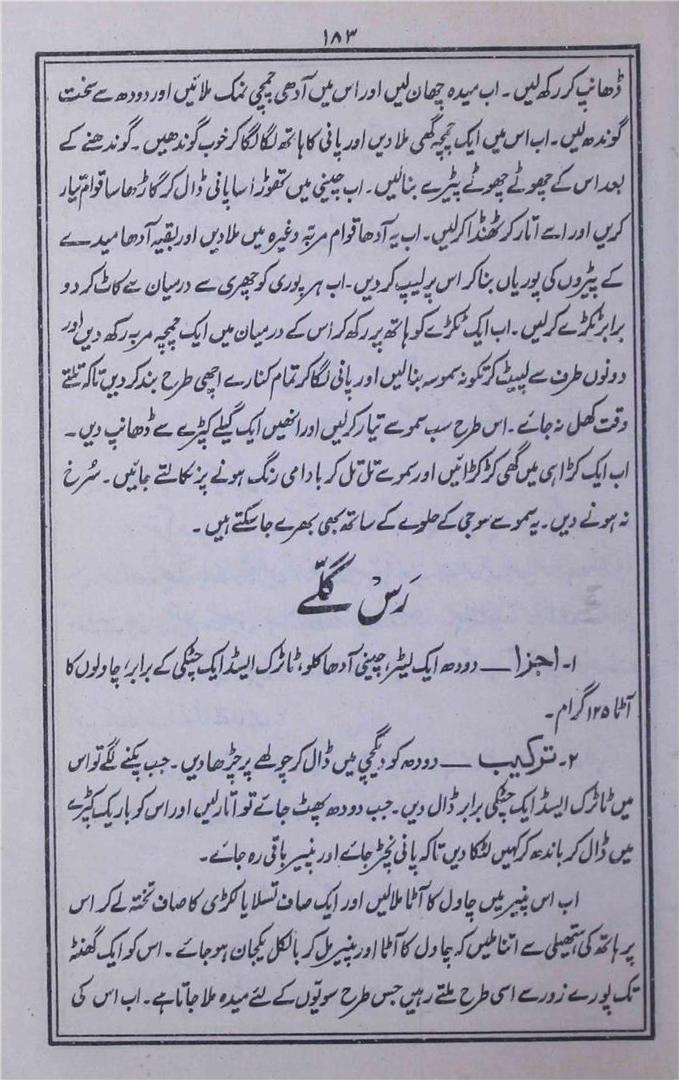 ۱۸۳
ڈھانپ کر رکھ لیں۔ اب میدہ چھان لیں اور اس میں آدھی چمچی نمک ملائیں اور دودھ سے سخت
گوندھ لیں۔ اب اس میں ایک چمچہ گھی ملا دیں اور پانی کا ہاتھ لگا لگا کر خوب گوندھیں۔ گوندھنے کے
بعد اس کے چھوٹے چھوٹے پیڑے بنالیں۔ اب چینی میں تھوڑا سا پانی ڈال کر گاڑھا سا قوام تیار
کریں اور اسے اتار کر ٹھنڈا کرلیں۔ اب یہ آدھا قوام مربّہ وغیرہ میں ملا دیں اور بقیہ آدھا میدے
کے پیڑوں کی پوریاں بنا کر اس پر لیپ کر دیں۔ اب ہر پوری کو چھری سے درمیان سے کاٹ کر دو
برابر ٹکڑے کرلیں۔ اب ایک ٹکڑے کو ہاتھ پر رکھ کر اُس کے درمیان میں ایک چمچہ مربہ رکھ دیں اور
دونوں طرف سے لپیٹ کر تکونہ سموسہ بنالیں اور پانی لگا کر تمام کنارے اچھی طرح بند کر دیں تاکہ تلتے
وقت کھل نہ جائے۔ اس طرح سب سموسے تیار کرلیں اور انھیں ایک گیلے کپڑے سے ڈھانپ دیں۔
اب ایک کڑاہی میں گھی کڑکڑائیں اور سموسے تل تل کر بادامی رنگ ہونے پر نکالتے جائیں۔ سُرخ
نہ ہونے دیں۔ یہ سموسے سوجی کے حلوے کے ساتھ بھی بھرے جاسکتے ہیں۔
رَس گُلّے
۱۔ اجزا — دودھ ایک لیٹر، چینی آدھا کلو، ٹاٹرک ایسڈ ایک چٹکی کے برابر، چاولوں کا
آٹا ۱۲۵ گرام۔
۲۔ ترکیب — دودھ کو دیگچی میں ڈال کر چولھے پر چڑھا دیں۔ جب پکنے لگے تو اس
میں ٹاٹرک ایسڈ ایک چٹکی برابر ڈال دیں۔ جب دودھ پھٹ جائے تو اتار لیں اور اس کو باریک کپڑے
میں ڈال کر باندھ کر کہیں لٹکا دیں تاکہ پانی نچڑ جائے اور پنیر باقی رہ جائے۔
اب اس پنیر میں چاول کا آٹا ملالیں اور ایک صاف تسلا یا لکڑی کا صاف تختہ لے کر اس
پر ہاتھ کی ہتھیلی سے اتنا ملیں کہ چاول کا آٹا اور پنیر مل کر بالکل یکجان ہو جائے۔ اس کو ایک گھنٹہ
تک پورے زور سے اسی طرح ملتے رہیں جس طرح سویّوں کے لئے میدہ ملا جاتا ہے۔ اب اس کی